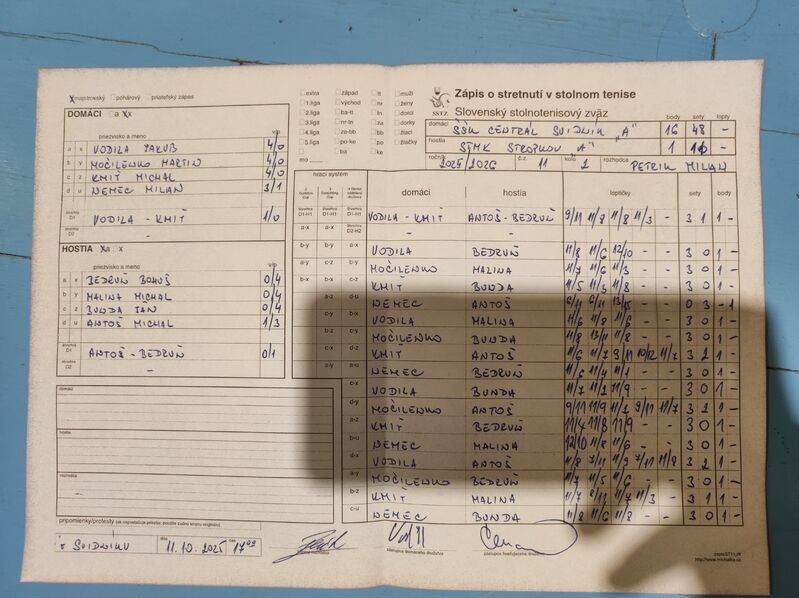 X majstrovský pohárový priateľský zápas
DOMÁCI a x x
priezvisko a meno v/p
a x VODILA JAKUB 4/0
b y MOČILENKO MARTIN 4/0
c z KMIŤ MICHAL 4/0
d u NEMEC MILAN 3/1
štvorhra D1 VODILA - KMIŤ 1/0
štvorhra D2 -
HOSTIA X a x
priezvisko a meno v/p
a x BEDRUŇ BOHUŠ 0/4
b y MALINA MICHAL 0/4
c z BUNDA JAN 0/4
d u ANTOŠ MICHAL 1/3
štvorhra D1 ANTOŠ - BEDRUŇ 0/1
štvorhra D2 -
domáci
hostia
rozhodca
pripomienky/protesty
v SVIDNÍKU dňa 11.10.2025 čas 17 00
extra západ tt muži
1.liga východ nr ženy
2.liga stred za dorky
3.liga nr-tn
4.liga za-bb bb žiaci
5.liga po-ke po žiačky
ba ke
mo
SSTZ
Zápis o stretnutí v stolnom tenise
Slovenský stolnotenisový zväz
body sety lopty
domáci SŠK CENTRAL SVIDNÍK "A" 16 48 -
hostia STMK STROPKOV "A" 1 -
ročník 2025/2026 č.z. 11 kolo 2 rozhodca PETRIK MILAN
hrací systém
domáci hostia loptičky sety body
D1-H1 D1-H1 D1-H1 VODILA - KMIŤ ANTOŠ - BEDRUŇ 9/11 11/8 11/8 11/3 - 3 1 1 -
a-x a-x D2-H2 - -
b-y b-y a-x VODILA BEDRUŇ 11/8 11/6 12/10 - - 3 0 1 -
a-y c-z b-y MOČILENKO MALINA 11/7 11/6 11/3 - - 3 0 1 -
b-x b-x c-z KMIŤ BUNDA 11/5 11/3 11/8 - - 3 0 1 -
a-z d-u NEMEC ANTOŠ 13/15 - - 0 3 - 1
c-y b-x VODILA MALINA 11/6 11/8 11/6 - - 3 0 1 -
b-z c-y MOČILENKO BUNDA 11/8 13/11 11/8 - - 3 0 1 -
c-x d-z KMIŤ ANTOŠ 11/6 11/7 9/11 10/12 11/7 3 2 1 -
a-y a-u NEMEC BEDRUŇ 11/6 11/4 11/1 - - 3 0 1 -
c-x VODILA BUNDA 11/7 11/2 11/9 - - 3 0 1 -
d-y MOČILENKO ANTOŠ 9/11 11/9 11/2 9/11 11/7 3 2 1 -
a-z KMIŤ BEDRUŇ 11/4 11/8 11/9 - - 3 0 1 -
b-u NEMEC MALINA 12/10 11/8 11/6 - - 3 0 1 -
d-x VODILA ANTOŠ 11/8 7/11 11/9 7/11 11/8 3 2 1 -
a-y MOČILENKO BEDRUŇ 11/7 11/5 11/6 - - 3 0 1 -
b-z KMIŤ MALINA 11/7 11/7 11/3 - 3 1 1 -
c-u NEMEC BUNDA 11/8 11/6 11/8 - - 3 0 1 -
zástupca domáceho družstva
zástupca hosťujúceho družstva